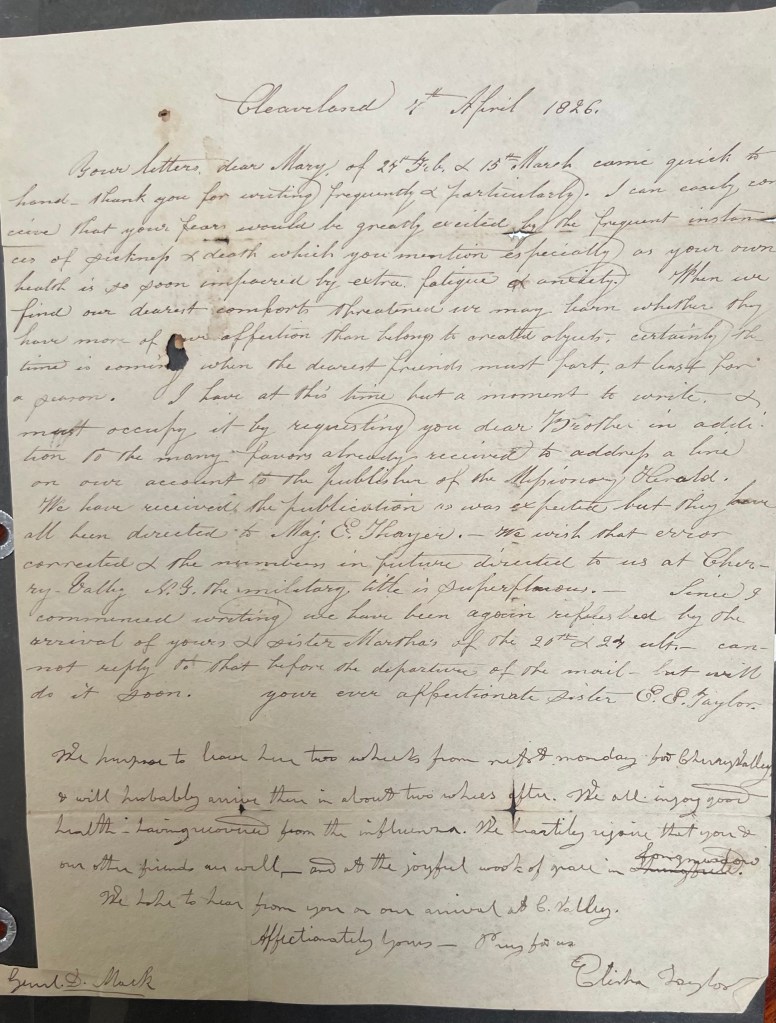 Cleaveland 7th April 1826.
Your letters, dear Mary, of 27th Feb. & 15th March came quick to
hand - thank you for writing frequently & particularly. I can easily con
ceive that your fears would be greatly excited by the frequent instan
ces of sickness & death which you mention especially as your own
health is so soon impaired by extra fatigue & anxiety. When we
find our dearest comforts threatened we may learn whether they
have more of our affection than belongs to created objects - certainly the
time is coming when the dearest friends must part, at least for
a season. I have at this time but a moment to write, &
must occupy it by requesting you dear Brother in addi-
tion to the many favors already received to address a line
on our account to the publisher of the Missionary Herald.
We have received the publication as was expected but they have
all been directed to Maj. E. Thayer. - We wish that error
corrected & the numbers in future directed to us at Cher-
ry-Valley N.Y. the military title is superfluous. - Since I
commenced writing we have been again refreshed by the
arrival of yours & sister Martha's of the 20th & 24 ult. - can-
not reply to that before the departure of the mail - but will
do it soon. your ever affectionate sister E. E. Taylor.
We purpose to leave here two wheeks from next monday for Cherry Valley
& will probably arrive there in about two whees after. We all injoy good
health - having recovered from the influenza. We heartily rejoice that you &
our other friends are well, - and at the joyful work of grace in Longmeadow
We hope to hear from you on our arrival at C. Valley.
Affectionately Yours - Pray for us
Genl. D. Mack Elisha Taylor